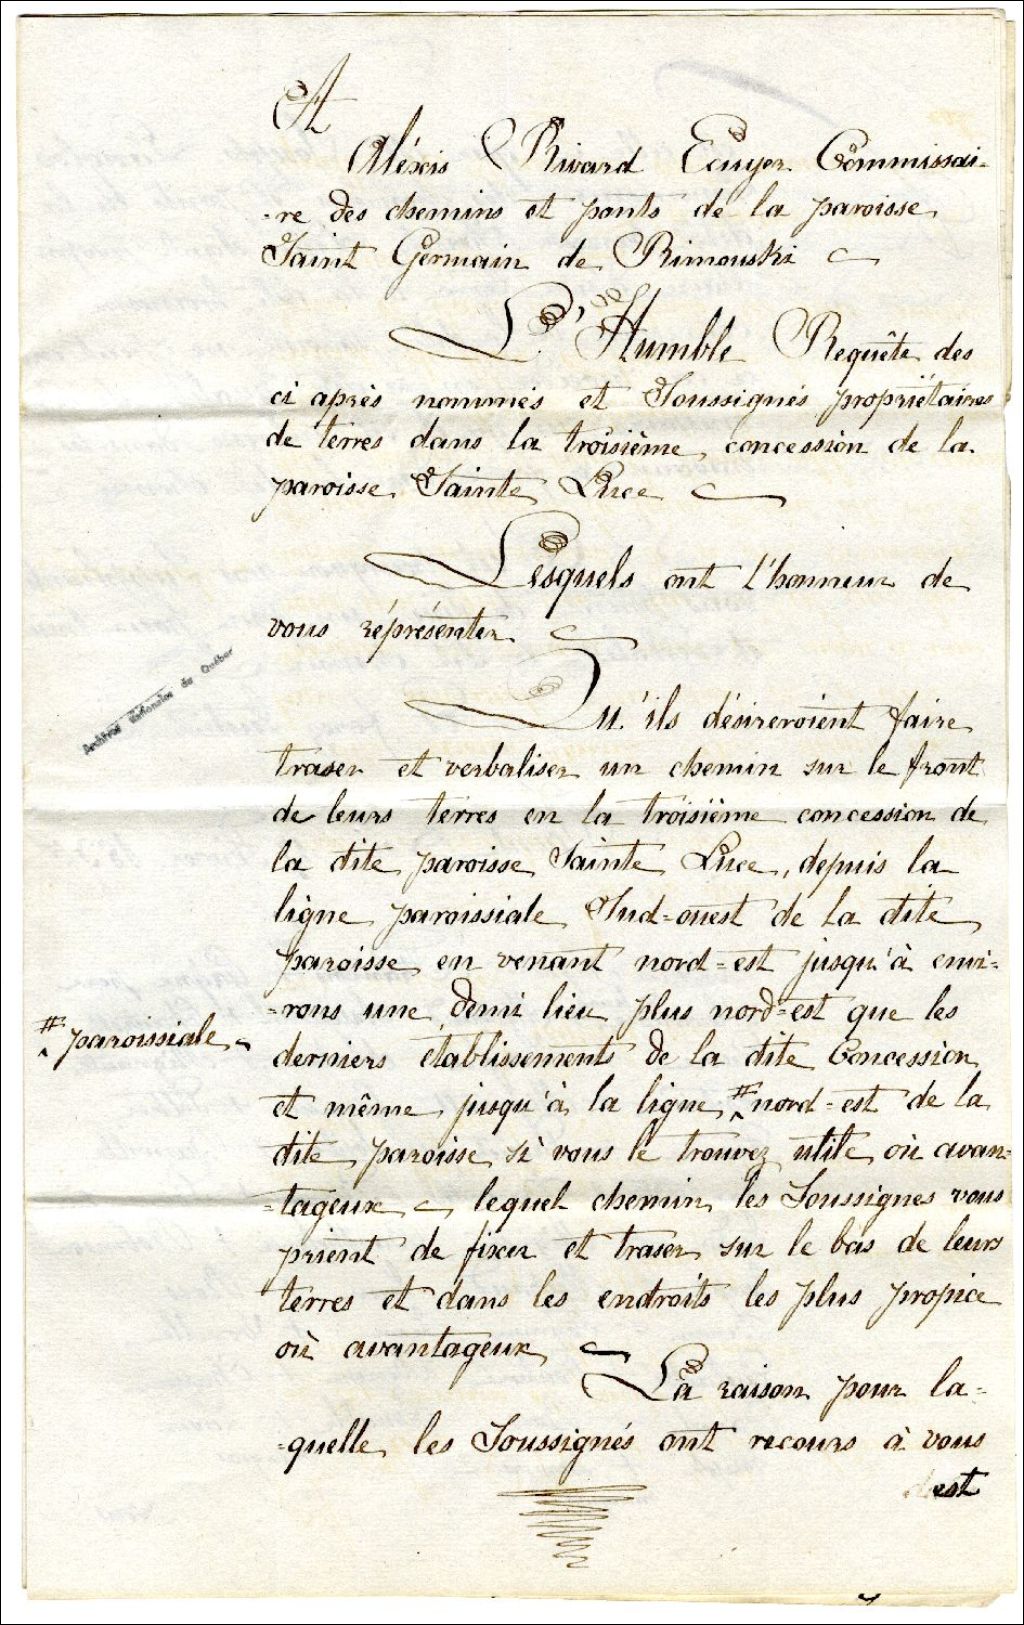 A
Aléxis Rivard Ecuyer Commissai-
-re des chemins et ponts de la paroisse
Saint Germain de Rimouski
L'Humble Requête des
ci après nommés et Soussignés propriétaires
de terres dans la troisième concession de la
paroisse Sainte Luce
Lesquels ont l'honneur de
vous réprésenter
Archives Nationales du Québec
Qu'ils désireroient faire
traser et verbaliser un chemin sur le front
de leurs terres en la troisième concession de
la dite paroisse Sainte Luce, depuis la
ligne paroissiale Sud=ouest de la dite
paroisse en venant nord=est jusqu'à envi=
=rons une demi lieu plus nord=est que les
# paroissiale
derniers établissements de la dite Concession
et même jusqu'à la ligne # nord=est de la
dite paroisse si vous le trouvez utile où avan=
=tageux lequel chemin les Soussignés vous
prient de fixer et traser sur le bas de leurs
terres et dans les endroits les plus propice
où avantageux
La raison pour la=
=quelle les Soussignés ont recours à vous
est